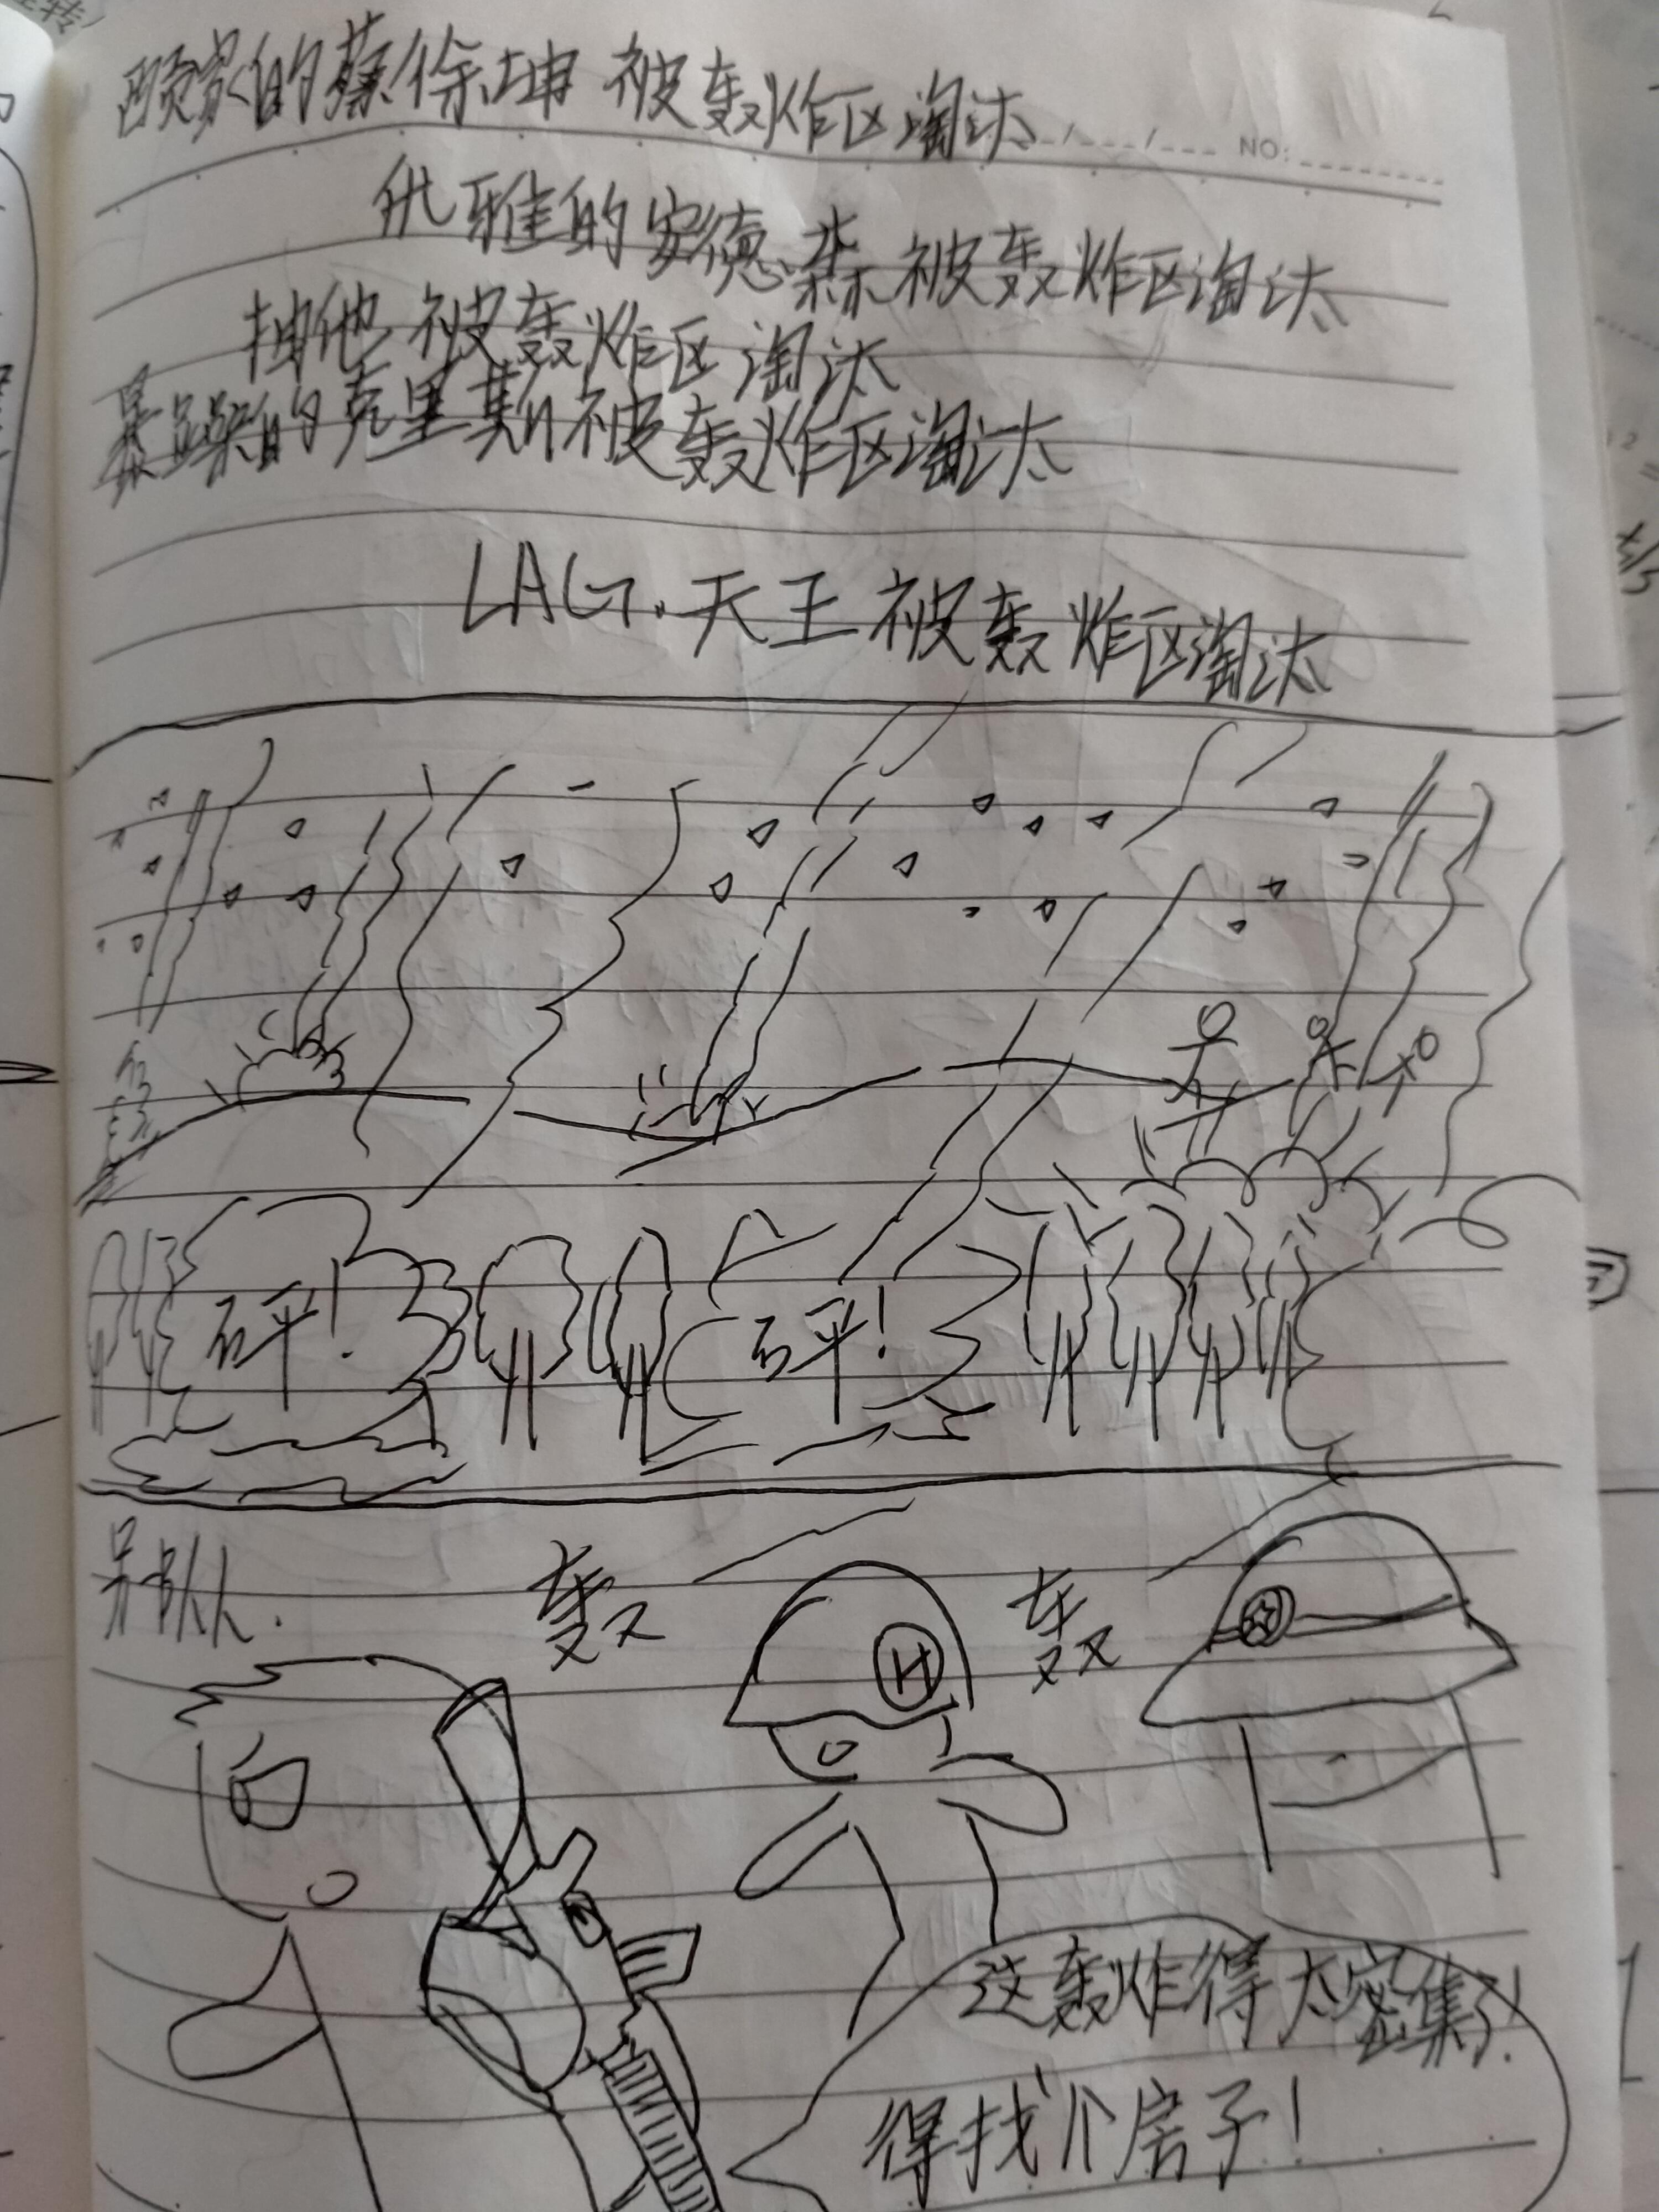 顾家的蔡徐坤 被轰炸区淘汰
NO:
优雅的安德森被轰炸区淘汰
抽他 被轰炸区淘汰
暴躁的克里斯被轰炸区淘汰
LAG.天王被轰炸区淘汰
砰! 砰!
另一队人.
轰 轰
H
这轰炸得太密集了!
得找个房子!